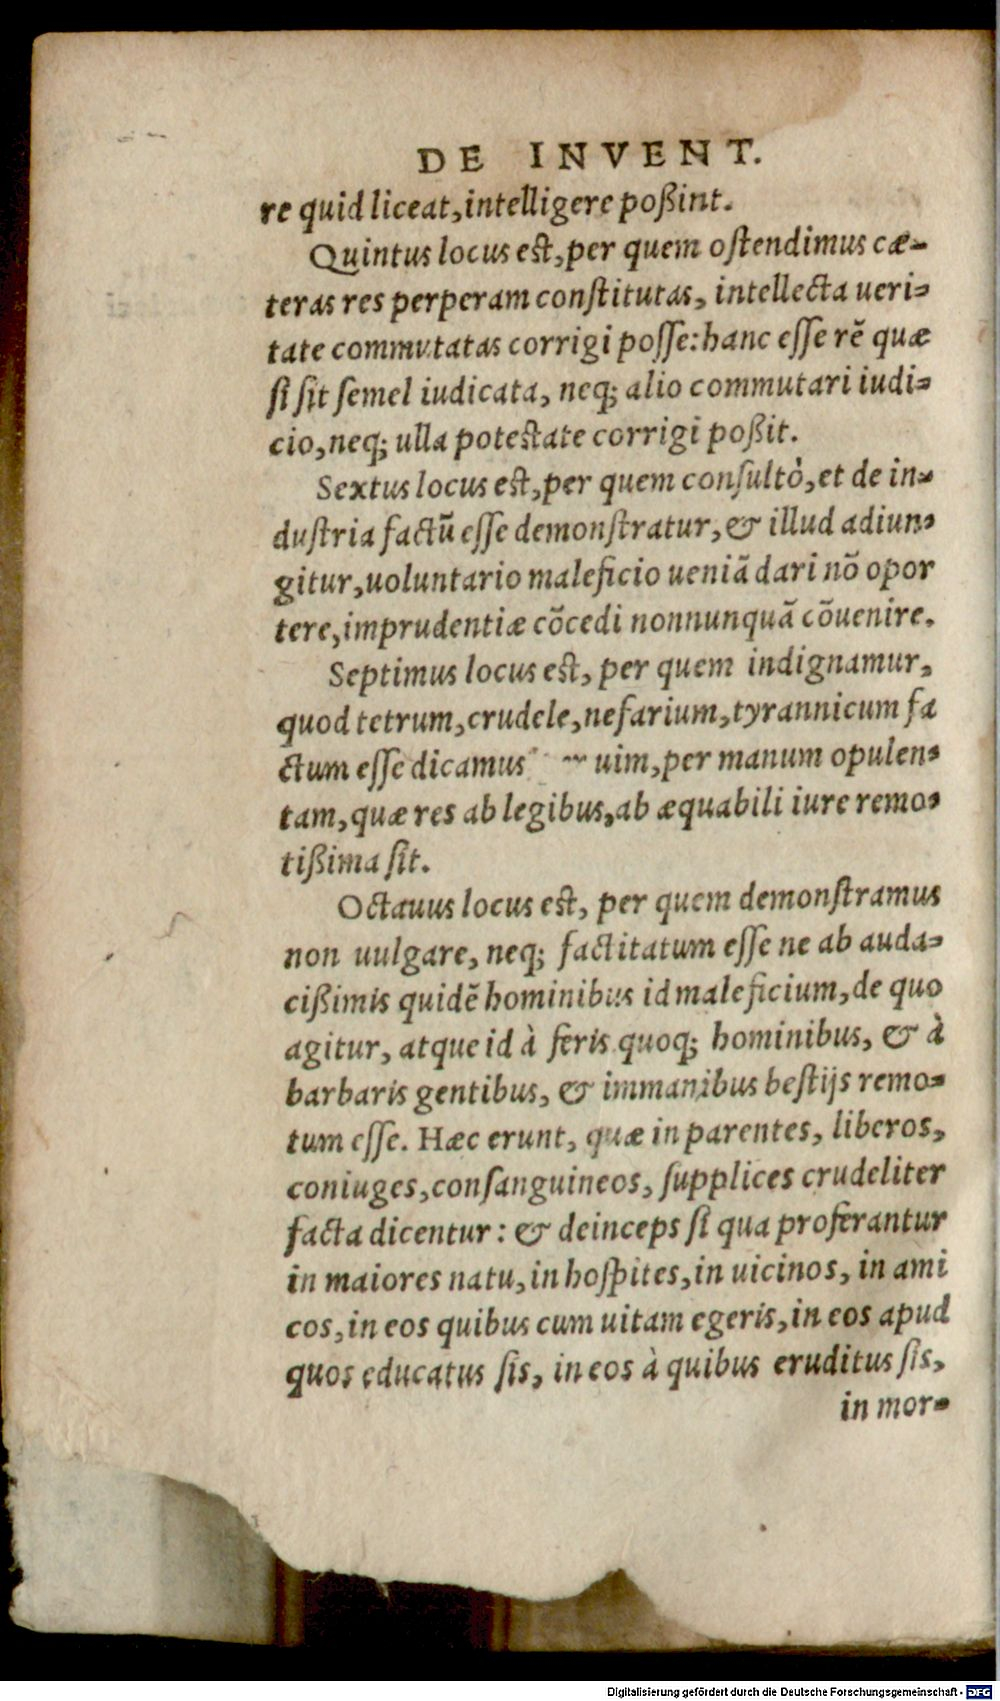 DE INVENT.
re quid liceat, intelligere poßint.
Quintus locus est, per quem ostendimus cæ-
teras res perperam constitutas, intellecta ueri-
tate commutatas corrigi posse: hanc esse rẽ quæ
si sit semel iudicata, neq; alio commutari iudi-
cio, neq; ulla potestate corrigi poßit.
Sextus locus est, per quem consultò, et de in-
dustria factũ esse demonstratur, & illud adiun-
gitur, uoluntario maleficio ueniã dari nõ opor
tere, imprudentiæ cõcedi nonnunquã cõuenire.
Septimus locus est, per quem indignamur,
quod tetrum, crudele, nefarium, tyrannicum fa
ctum esse dicamus uim, per manum opulen-
tam, quæ res ab legibus, ab æquabili iure remo-
tißima sit.
Octauus locus est, per quem demonstramus
non uulgare, neq; factitatum esse ne ab auda-
cißimis quidẽ hominibus id maleficium, de quo
agitur, atque id à feris quoq; hominibus, & à
barbaris gentibus, & immanibus bestijs remo-
tum esse. Hæc erunt, quæ in parentes, liberos,
coniuges, consanguineos, supplices crudeliter
facta dicentur: & deinceps si qua proferantur
in maiores natu, in hospites, in uicinos, in ami
cos, in eos quibus cum uitam egeris, in eos apud
quos educatus sis, in eos à quibus eruditus sis,
in mor-
Digitalisierung gefördert durch die Deutsche Forschungsgemeinschaft - DFG